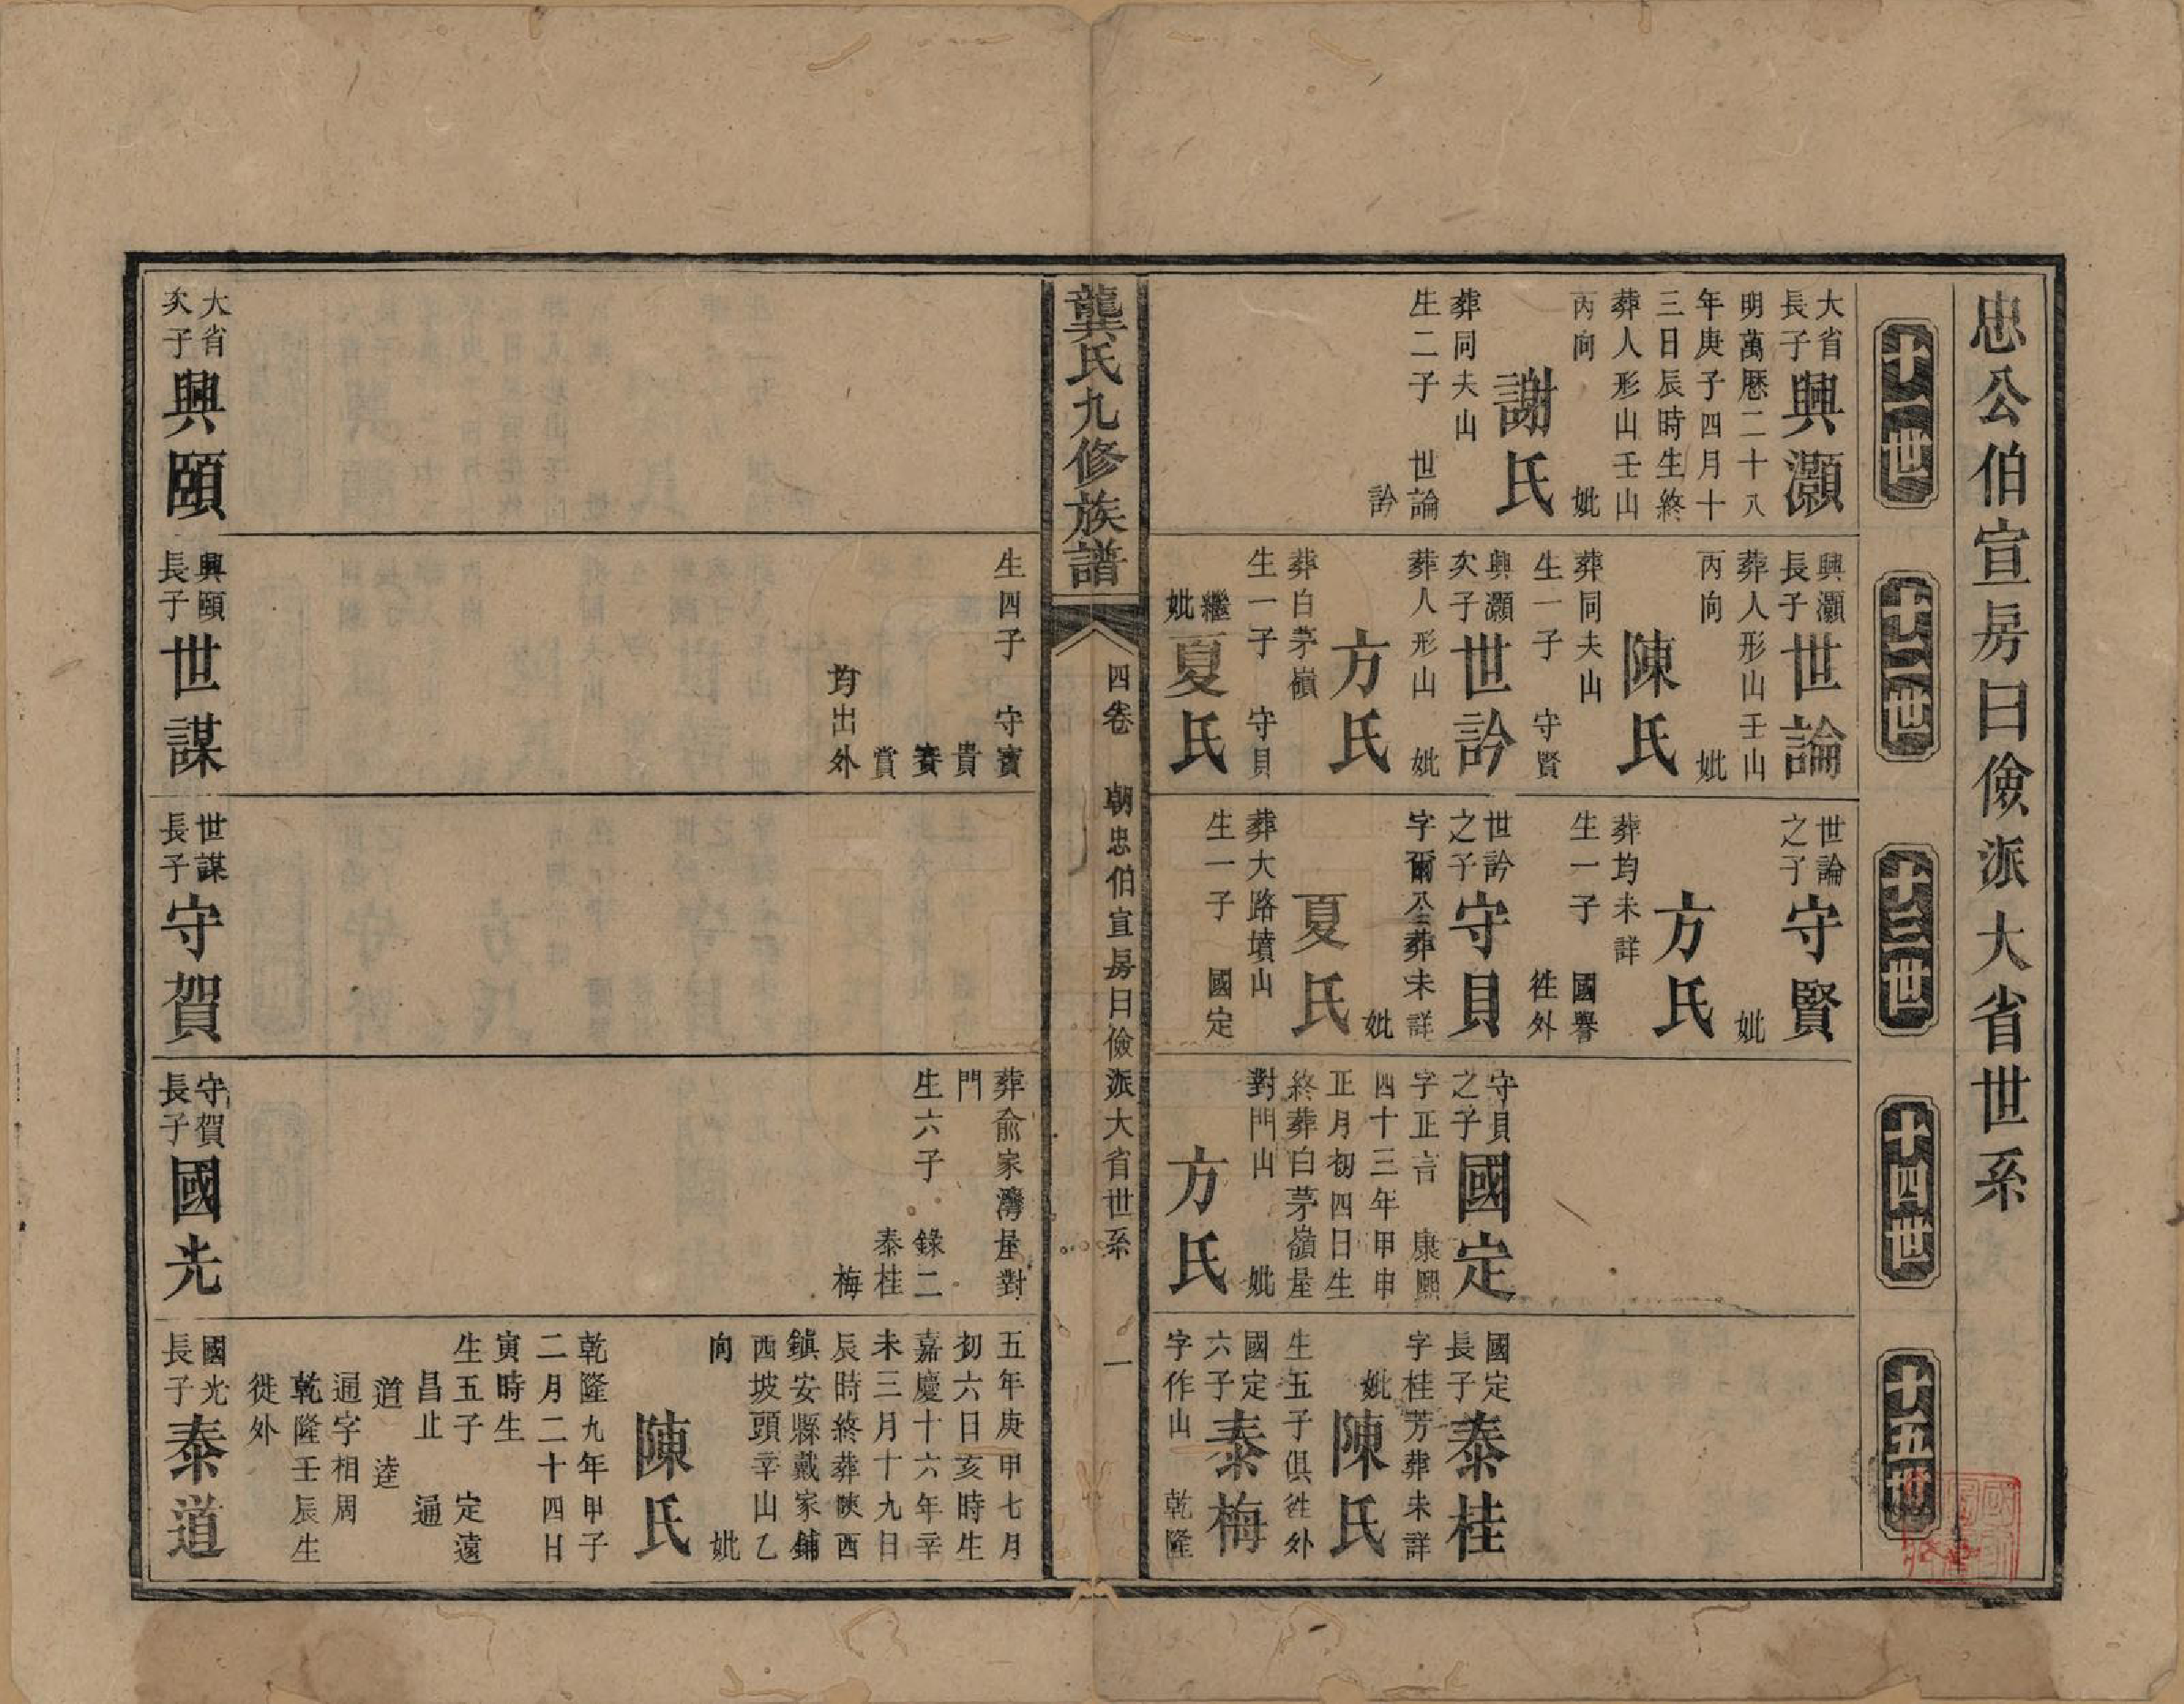 忠公伯宣房曰儉派大省世系
十一世
大省長子興灝
明萬曆二十八
年庚子四月十
三日辰時生終
葬人形山壬山
丙向　妣
謝氏
葬同夫山
生二子　世論
訡
十二世
興灝長子世論
葬人形山壬山
丙向　妣
陳氏
葬同夫山
生一子　守賢
興灝次子世訡
葬人形山　妣
方氏
葬白茅嶺
生一子　守貝
繼妣夏氏
十三世
世論之子守賢
妣
方氏
葬均未詳
生一子　國譽
徃外
世訡之子守貝
字爾公葬未詳
妣
夏氏
葬大路墳山
生一子　國定
十四世
守貝之子國定
字正言　康熙
四十三年甲申
正月初四日生
終葬白茅嶺屋
對門山　妣
方氏
十五世
國定長子泰桂
字桂芳葬未詳
妣
陳氏
生五子俱徃外
國定六子泰梅
字作山　乾隆
龔氏九修族譜
四卷　朝忠伯宣房曰儉派大省世系　一
大省次子興頤
生四子　守賓
貴
賚
賞
均出外
興頤長子世謀
世謀長子守賀
葬俞家灣屋對
門
生六子　錄二
泰桂
梅
守賀長子國光
五年庚甲七月
初六日亥時生
嘉慶十六年辛
未三月十九日
辰時終葬陝西
鎮安縣戴家鋪
西坡頭辛山乙
向　妣
陳氏
乾隆九年甲子
二月二十四日
寅時生
生五子　定遠
昌止　通
道　逵
通字相周
乾隆壬辰生
徙外
國光長子泰道